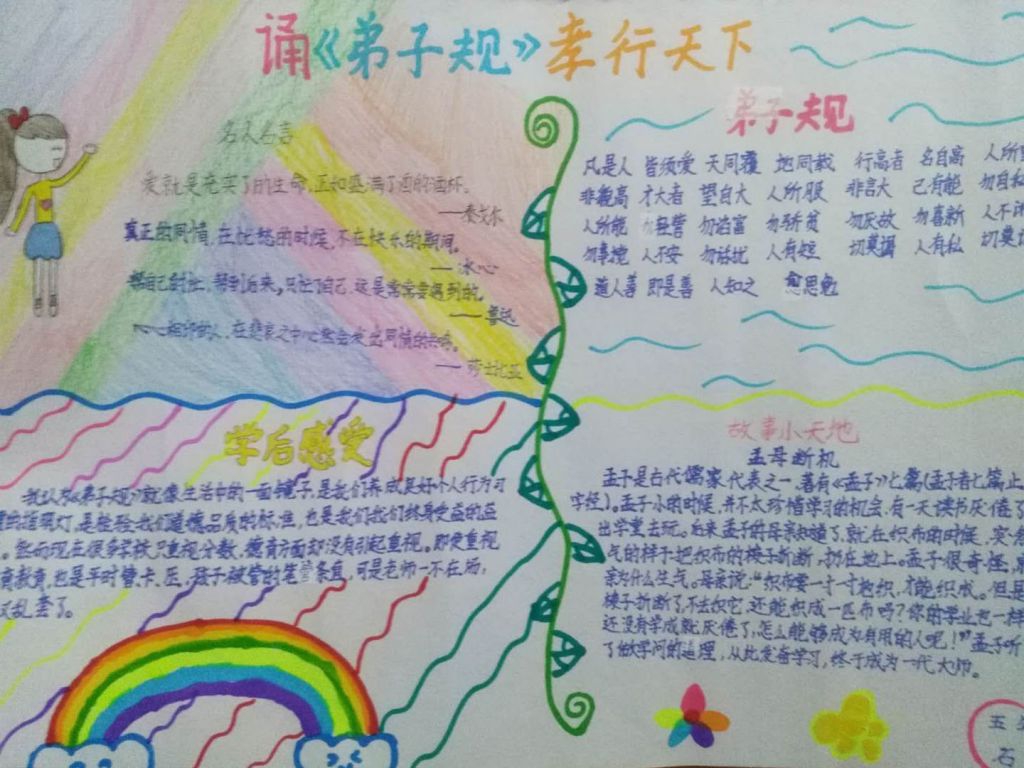 诵《弟子规》孝行天下
名人名言
爱就是充实了的生命,正如盛满了酒的酒杯。
——泰戈尔
真正的同情,在忧愁的时候,不在快乐的期间。
——冰心
帮自己的忙,帮到后来,只忙了自己,这是常常要遇到的。
——鲁迅
心心相印的人,在悲哀之中必然会发出同情的共鸣。
——莎士比亚
弟子规
凡是人 皆须爱 天同覆 地同载 行高者 名自高 人所
非貌高 才大者 望自大 人所服 非言大 己有能 勿自私
人所能 勿轻訾 勿谄富 勿骄贫 勿厌故 勿喜新 人不
勿事搅 人不安 勿话扰 人有短 切莫揭 人有私 切莫
道人善 即是善 人知之 愈思勉
学后感受
我认为《弟子规》就像生活中的一面镜子,是我们养成良好个人行为习
的指明灯,是检验我们道德品质的标准,也是我们我们终身受益的
。然而现在很多学校只重视分数,德育方面却没有引起重视。即使重视
教育,也是平时管、卡、压,孩子被管的笔管条直,可是老师一不在场,
又乱套了。
故事小天地
孟母断机
孟子是古代儒家代表之一,著有《孟子》七篇(孟子者七篇止
字经)。孟子小的时候,并不太珍惜学习的机会,有一天读书厌倦了
出学堂去玩。后来孟子的母亲知道了,就在织布的时候,突然
气的样子把织布的梭子折断,扔在地上。孟子很奇怪,
亲为什么生气。母亲说:“织布要一寸一寸把织,才能织成。但是
梭子折断了,不去织它,还能织成一匹布吗?你的学业也一样
还没有学成就厌倦了,怎么能够成为有用的人呢!”孟子听
了做学问的道理,从此发奋学习,终于成为一代大师。
五
石